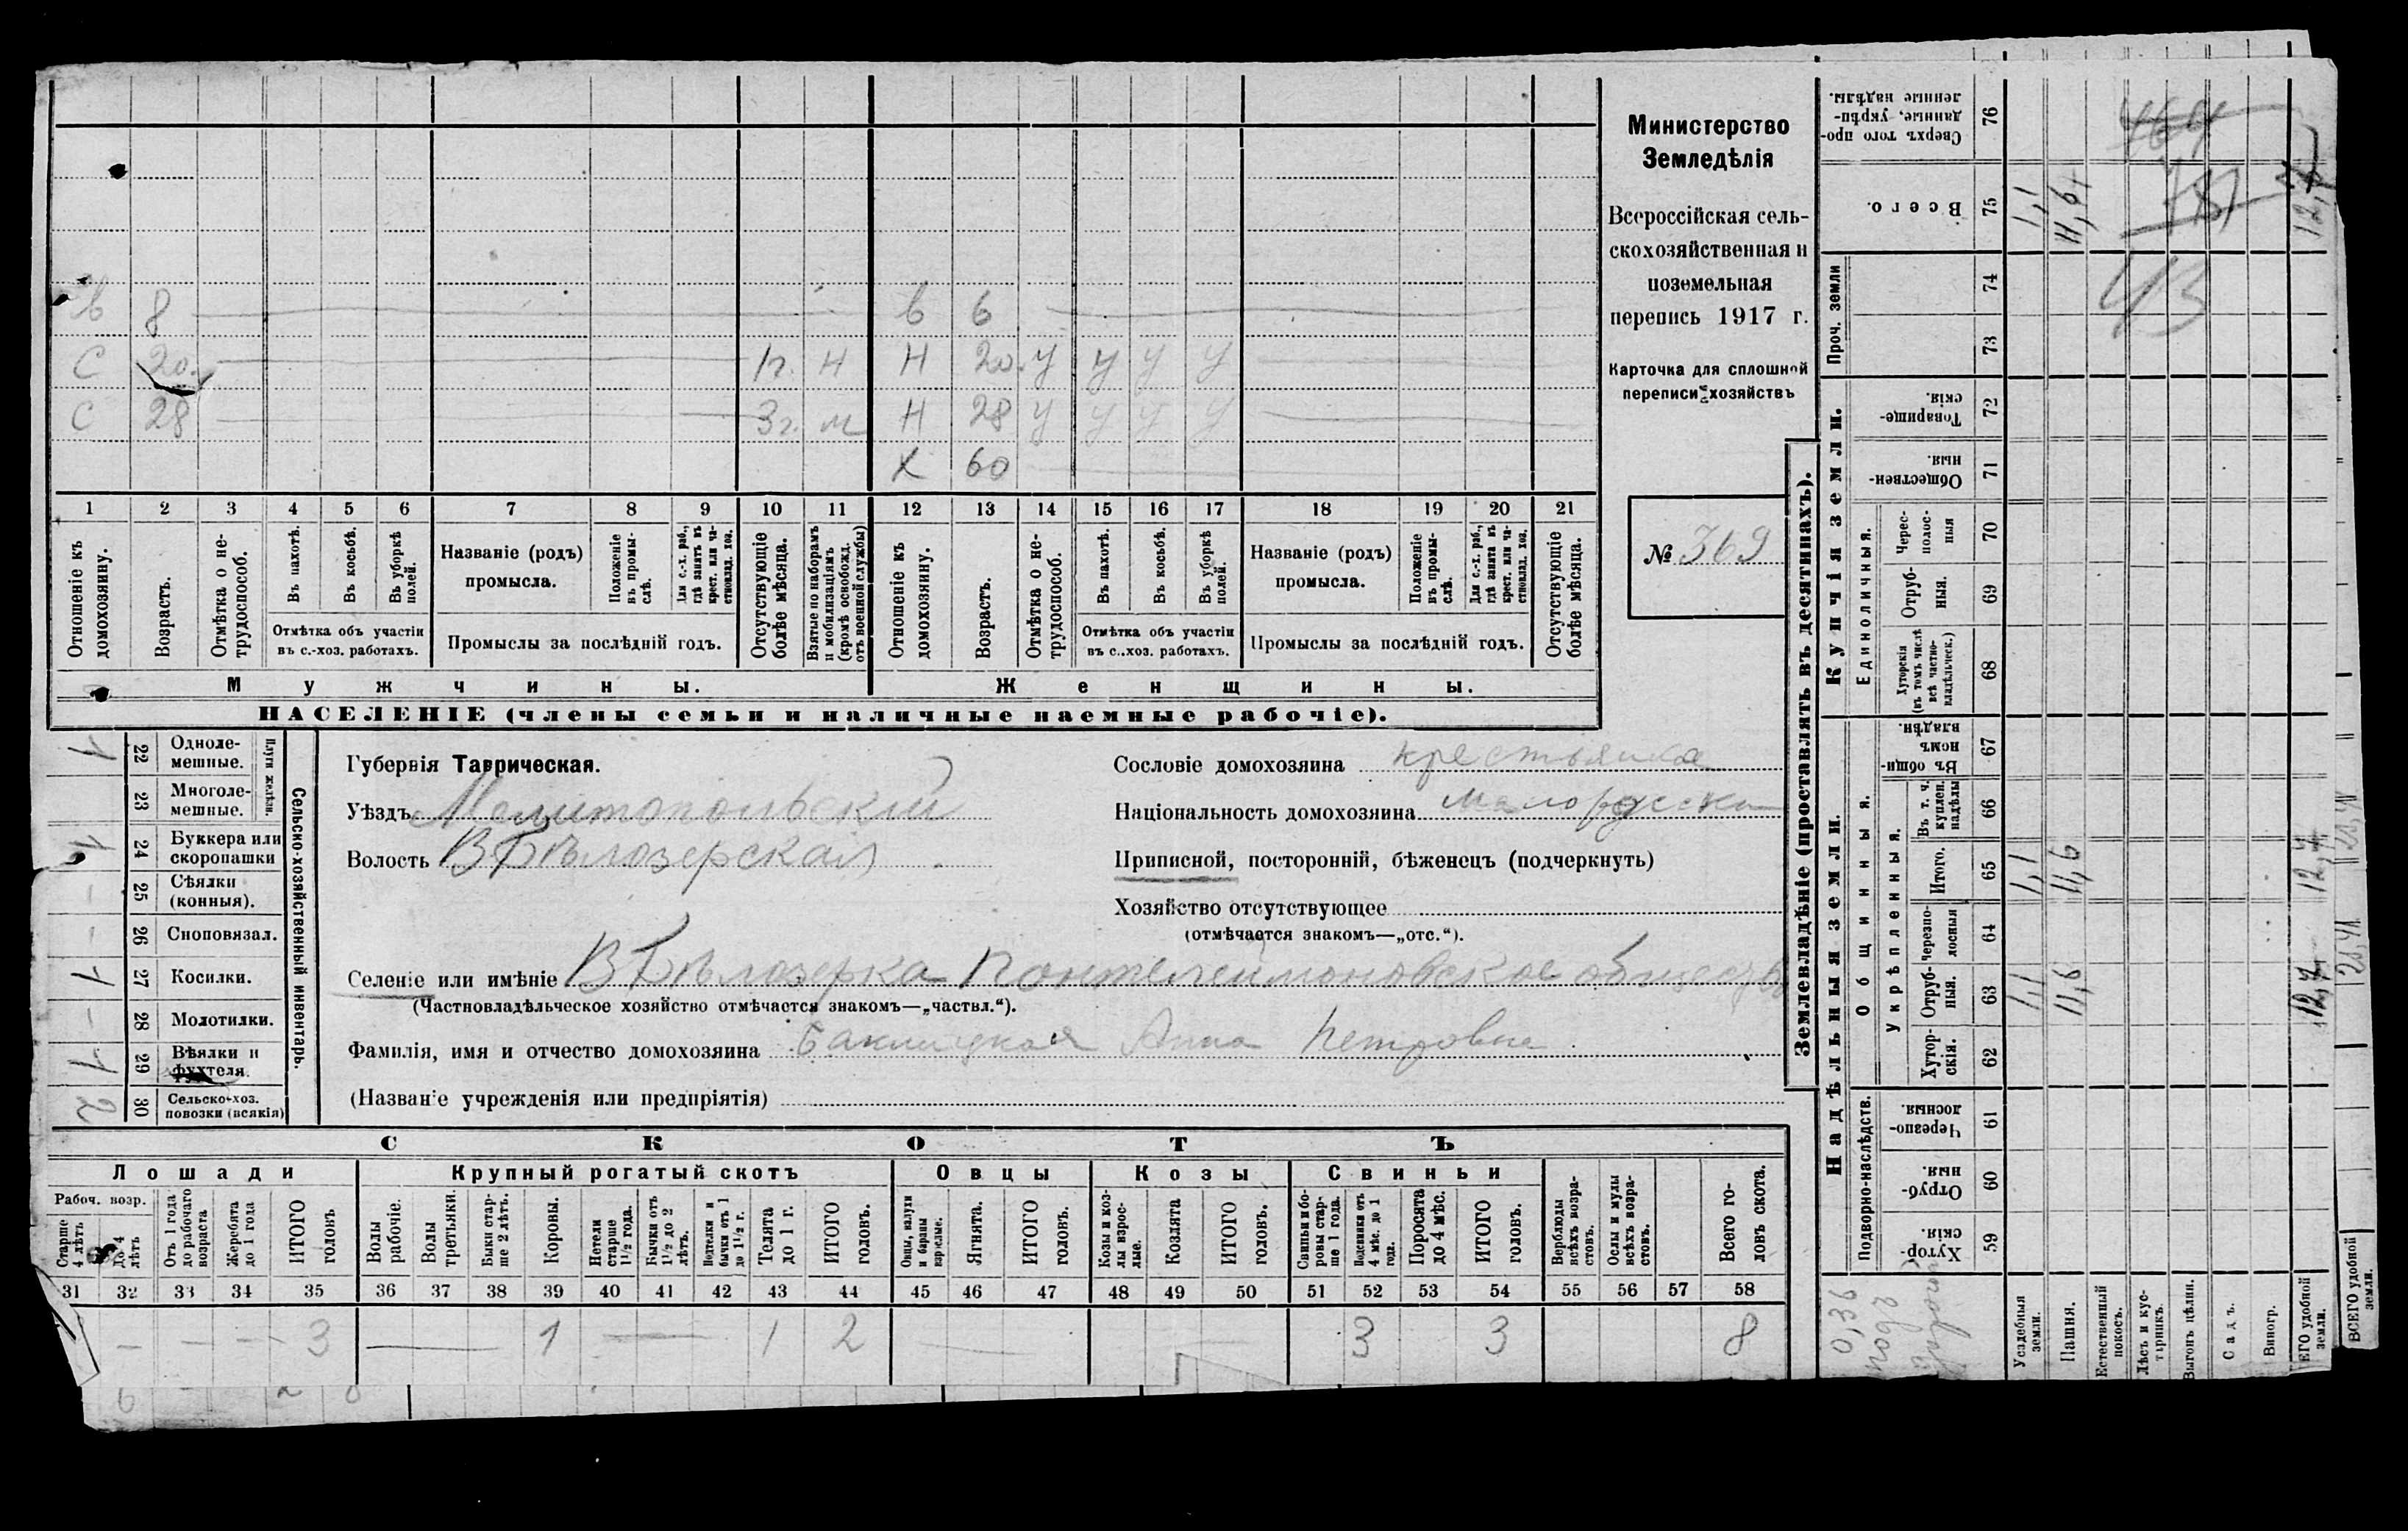 в 8 в 6
С 20 1г. Н Н 20 У У У У
С 28 3г. м Н 28 У У У У
Х 60
1 2 3 4 5 6 7 8 9 10 11 12 13 14 15 16 17 18 19 20 21
Отношеніе къ домохозяину.
Возрастъ.
Отмѣтка о не-трудоспособ.
Въ пахотѣ.
Въ косьбѣ.
Въ уборкѣ полей.
Отмѣтка объ участіи въ с.-хоз. работахъ.
Названіе (родъ) промысла.
Положеніе въ промы-слѣ.
Для с.-х. раб., гдѣ занятъ въ крест. или ча-стновлад. хоз.
Промыслы за послѣдній годъ.
Отсутствующіе болѣе мѣсяца.
Взятые по наборамъ и мобилизаціямъ (кромѣ освобожд. отъ военной службы)
Отношеніе къ домохозяину.
Возрастъ.
Отмѣтка о не-трудоспособ.
Въ пахотѣ.
Въ косьбѣ.
Въ уборкѣ полей.
Отмѣтка объ участіи въ с.-хоз. работахъ.
Названіе (родъ) промысла.
Положеніе въ промы-слѣ.
Для с.-х. раб., гдѣ занята въ крест. или ча-стновлад. хоз.
Промыслы за послѣдній годъ.
Отсутствующіе болѣе мѣсяца.
Мужчины. Женщины.
НАСЕЛЕНІЕ (члены семьи и наличные наемные рабочіе).
Министерство
Земледѣлія
Всероссійская сель-
скохозяйственная и
поземельная
перепись 1917 г.
Карточка для сплошной
переписи хозяйствъ
№ 369
Сельско-хозяйственный инвентарь.
Плуги желѣзн.
1 22 Одноле-мешные.
23 Многоле-мешные.
1 24 Буккера или скоропашки
– 25 Сѣялки (конныя).
– 26 Сноповязал.
1 27 Косилки.
– 28 Молотилки.
1 29 Вѣялки и фухтеля.
2 30 Сельско-хоз. повозки (всякія)
Губернія Таврическая.
Уѣздъ Мелитопольскій
Волость В Бѣлозерская
Селеніе или имѣніе В Бѣлозерка Пантелеймоновское
(Частновладѣльческое хозяйство отмѣчается знакомъ—„частвл.“).
Фамилія, имя и отчество домохозяина Баклицкая Анна Петровна
(Названіе учрежденія или предпріятія)
Сословіе домохозяина крестьянка
Національность домохозяина малорусска
Приписной, посторонній, бѣженецъ (подчеркнуть)
Хозяйство отсутствующее
(отмѣчается знакомъ—„отс.“).
СКОТЪ
Лошади Крупный рогатый скотъ Овцы Козы Свиньи
Рабоч. возр.
Старше 4 лѣтъ
До 4 лѣтъ
Отъ 1 года до рабочаго возраста
Жеребята до 1 года
ИТОГО головъ
Волы рабочіе.
Волы третьяки.
Быки стар-ше 2 лѣтъ.
Коровы.
Нетели старше 1½ года.
Бычки отъ 1½ до 2 лѣтъ.
Подтелки и бычки отъ 1 до 1½ г.
Телята до 1 г.
ИТОГО головъ.
Овцы, валухи и бараны взрослые.
Ягнята.
ИТОГО головъ.
Козы и коз-лы взрос-лые.
Козлята
ИТОГО головъ.
Свиньи и бо-ровы стар-ше 1 года.
Подсвинки отъ 4 мѣс. до 1 года.
Поросята до 4 мѣс.
ИТОГО головъ.
Верблюды всѣхъ возра-стовъ.
Ослы и мулы всѣхъ возра-стовъ.
Всего го-ловъ скота.
31 32 33 34 35 36 37 38 39 40 41 42 43 44 45 46 47 48 49 50 51 52 53 54 55 56 57 58
– – – 3 – 1 – 1 2 – – 3 3 8
Землевладѣніе (проставлять въ десятинахъ).
Надѣльныя земли. Купчія земли. Проч. земли
Подворно-наслѣдств. Общинныя. Единоличныя.
Укрѣпленныя.
Хутор-скія. 59
Отруб-ныя. 60
Черезпо-лосныя. 61
Хутор-скія. 62
Отруб-ныя. 63
Черезпо-лосныя 64
Итого. 65
Въ т. ч. куплен. надѣлы 66
Въ общи-номъ владѣн. 67
Хуторскія (въ томъ числѣ всѣ частно-владѣльческ.) 68
Отруб-ныя. 69
Черес-полос-ныя 70
Обществен-ныя. 71
Товарище-скія. 72
73
74
Всего. 75
Сверхъ того про-данные, укрѣп-ленные надѣлы. 76
0,36
Усадебныя земли. 1,1 1,1 1,1
Пашня. 11,6 11,6 11,6
Естественный покосъ.
Лѣсъ и кус-тарникъ.
Выгонъ цѣлин.
Садъ.
Виногр.
ЕГО удобной земли. 12,7 12,7 12,7
ВСЕГО удобной земли.
43